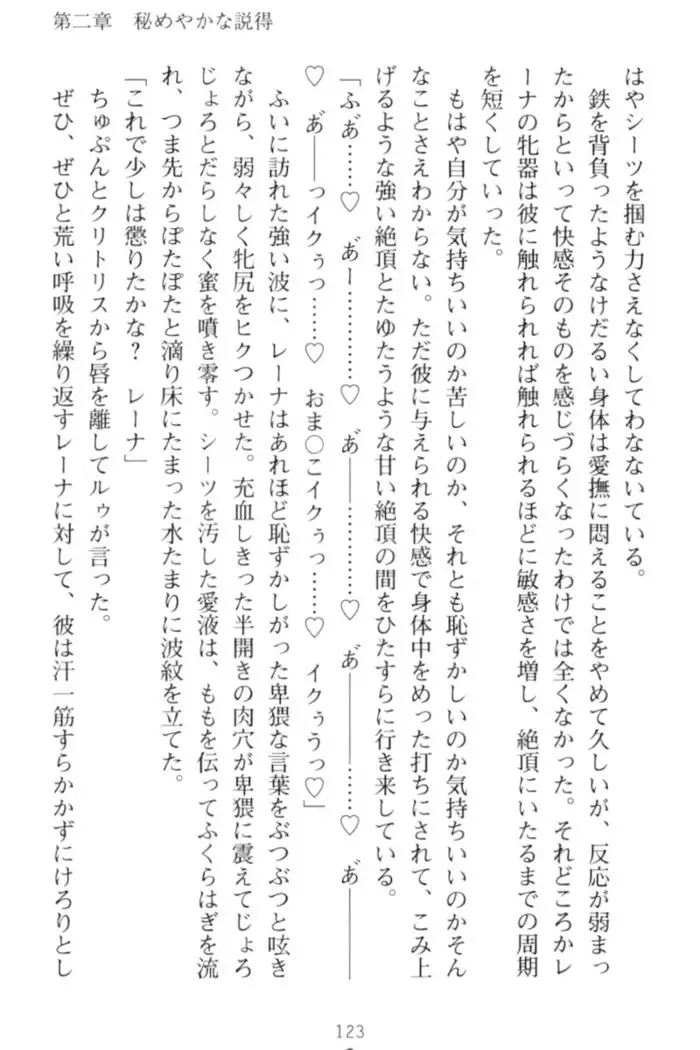 第二章　秘めやかな説得
はやシーツを掴む力さえなくしてわなないている。
　鉄を背負ったようなけだるい身体は愛撫に悶えることをやめて久しいが、反応が弱まっ
たからといって快感そのものを感じづらくなったわけでは全くなかった。それどころかレ
ーナの牝器は彼に触れられれば触れられるほどに敏感さを増し、絶頂にいたるまでの周期
を短くしていった。
　もはや自分が気持ちいいのか苦しいのか、それとも恥ずかしいのか気持ちいいのかそん
なことさえわからない。ただ彼に与えられる快感で身体中をめった打ちにされて、こみ上
げるような強い絶頂とたゆたうような甘い絶頂の間をひたすらに行き来している。
「ふあ゛……♡　あ゛ー…………♡　あ゛――…………♡　あ゛――――……♡　あ゛――――
♡　あ゛――っイクぅっ……♡　おま○こイクぅっ……♡　イクぅうっ♡」
　ふいに訪れた強い波に、レーナはあれほど恥ずかしがった卑猥な言葉をぶつぶつと呟き
ながら、弱々しく牝尻をヒクつかせた。充血しきった半開きの肉穴が卑猥に震えてじょろ
じょろとだらしなく蜜を噴き零す。シーツを汚した愛液は、ももを伝ってふくらはぎを流
れ、つま先からぽたぽたと滴り床にたまった水たまりに波紋を立てた。
「これで少しは懲りたかな？　レーナ」
　ちゅぷんとクリトリスから唇を離してルゥが言った。
　ぜひ、ぜひと荒い呼吸を繰り返すレーナに対して、彼は汗一筋すらかかずにけろりとし
123